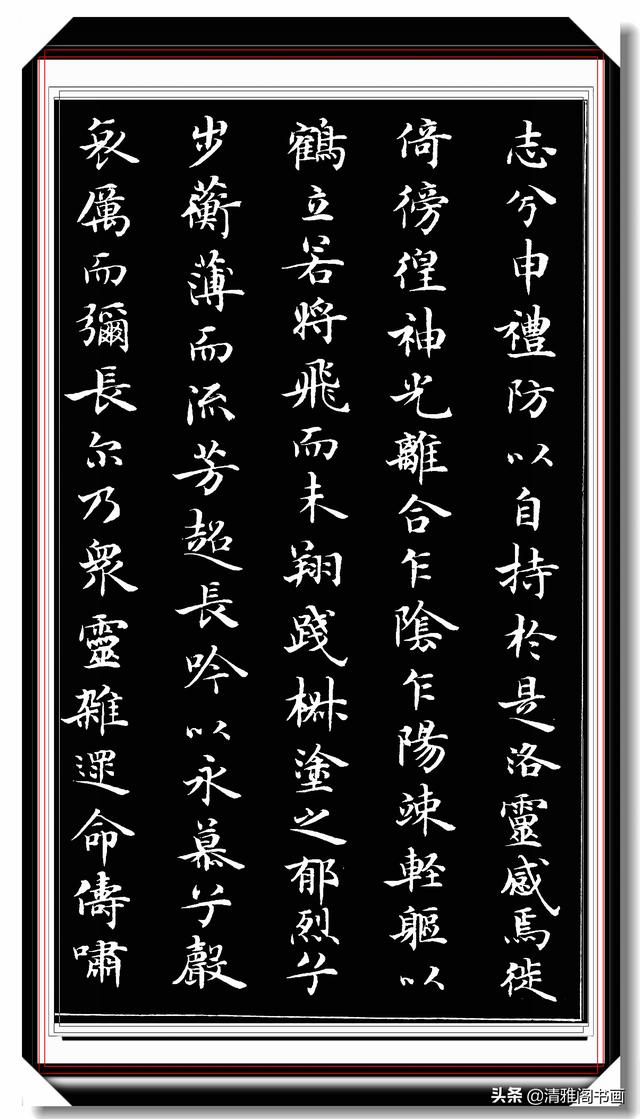 志兮申禮防以自持於是洛靈感焉徙
倚徬徨神光離合乍陰乍陽竦軽軀以
鶴立若將飛而未翔踐椒塗之郁烈兮
步蘅薄而流芳超長吟以永慕兮聲
哀厲而彌長尔乃衆靈雜遝命儔嘯
头条 @清雅阁书画